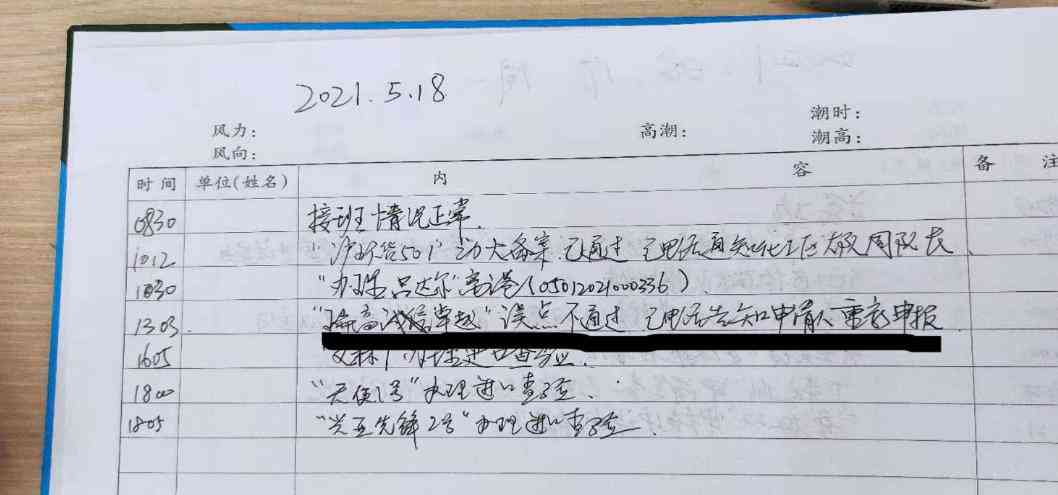 2021.5.18
风力: 高潮: 潮时:
风向: 潮高:
时间 单位(姓名) 内 容 备 注
0830 接班情况正常.
1012 501"动火备案 已通过 已电话通知
1030 "办理 吕达尔"离港(05012021000336)
1303. 误点 不通过 已电话告知申请人重新申报
1605
1800 "天使1号"办理进口查验.
1805 "兴亚先锋2号"办理进口查验.